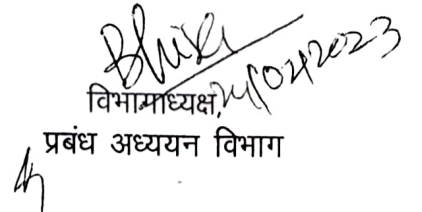 24/02/2023
विभागाध्यक्ष,
प्रबंध अध्ययन विभाग